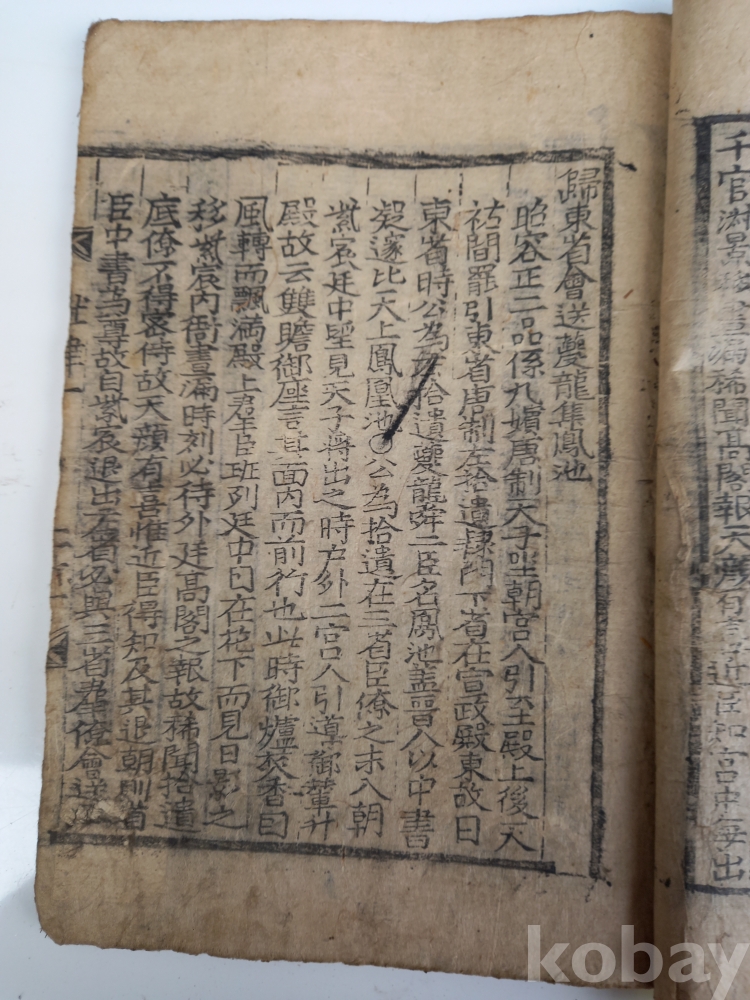 千官淑景移晝漏稀聞高閣報天顏有喜近臣知宮中每出
歸東省會送夔龍集鳳池
昭容正二品係九嬪唐制天子坐朝宮人引至殿上後天
祐間罷引東省唐制左拾遺隸門下省在宣政殿東故曰
東省時公為拾遺夔龍舜二臣名鳳池蓋晋人以中書
凝邃比天上鳳凰池○公為拾遺在三省臣僚之末入朝
紫宸廷中望見天子將出之時戶外二宮人引導御輦升
殿故云雙瞻御座言其面内而前行也此時御爐焚香因
風轉而飄滿殿上羣臣班列廷中日在花下而見日影之
移紫宸内衙晝漏時刻必待外廷高閣之報故稀聞拾遺
底僚不得密侍故天顏有喜惟近臣得知及其退朝則省
臣中書為尊故自紫宸退出左省必與三省羣僚會送
律一
kobay